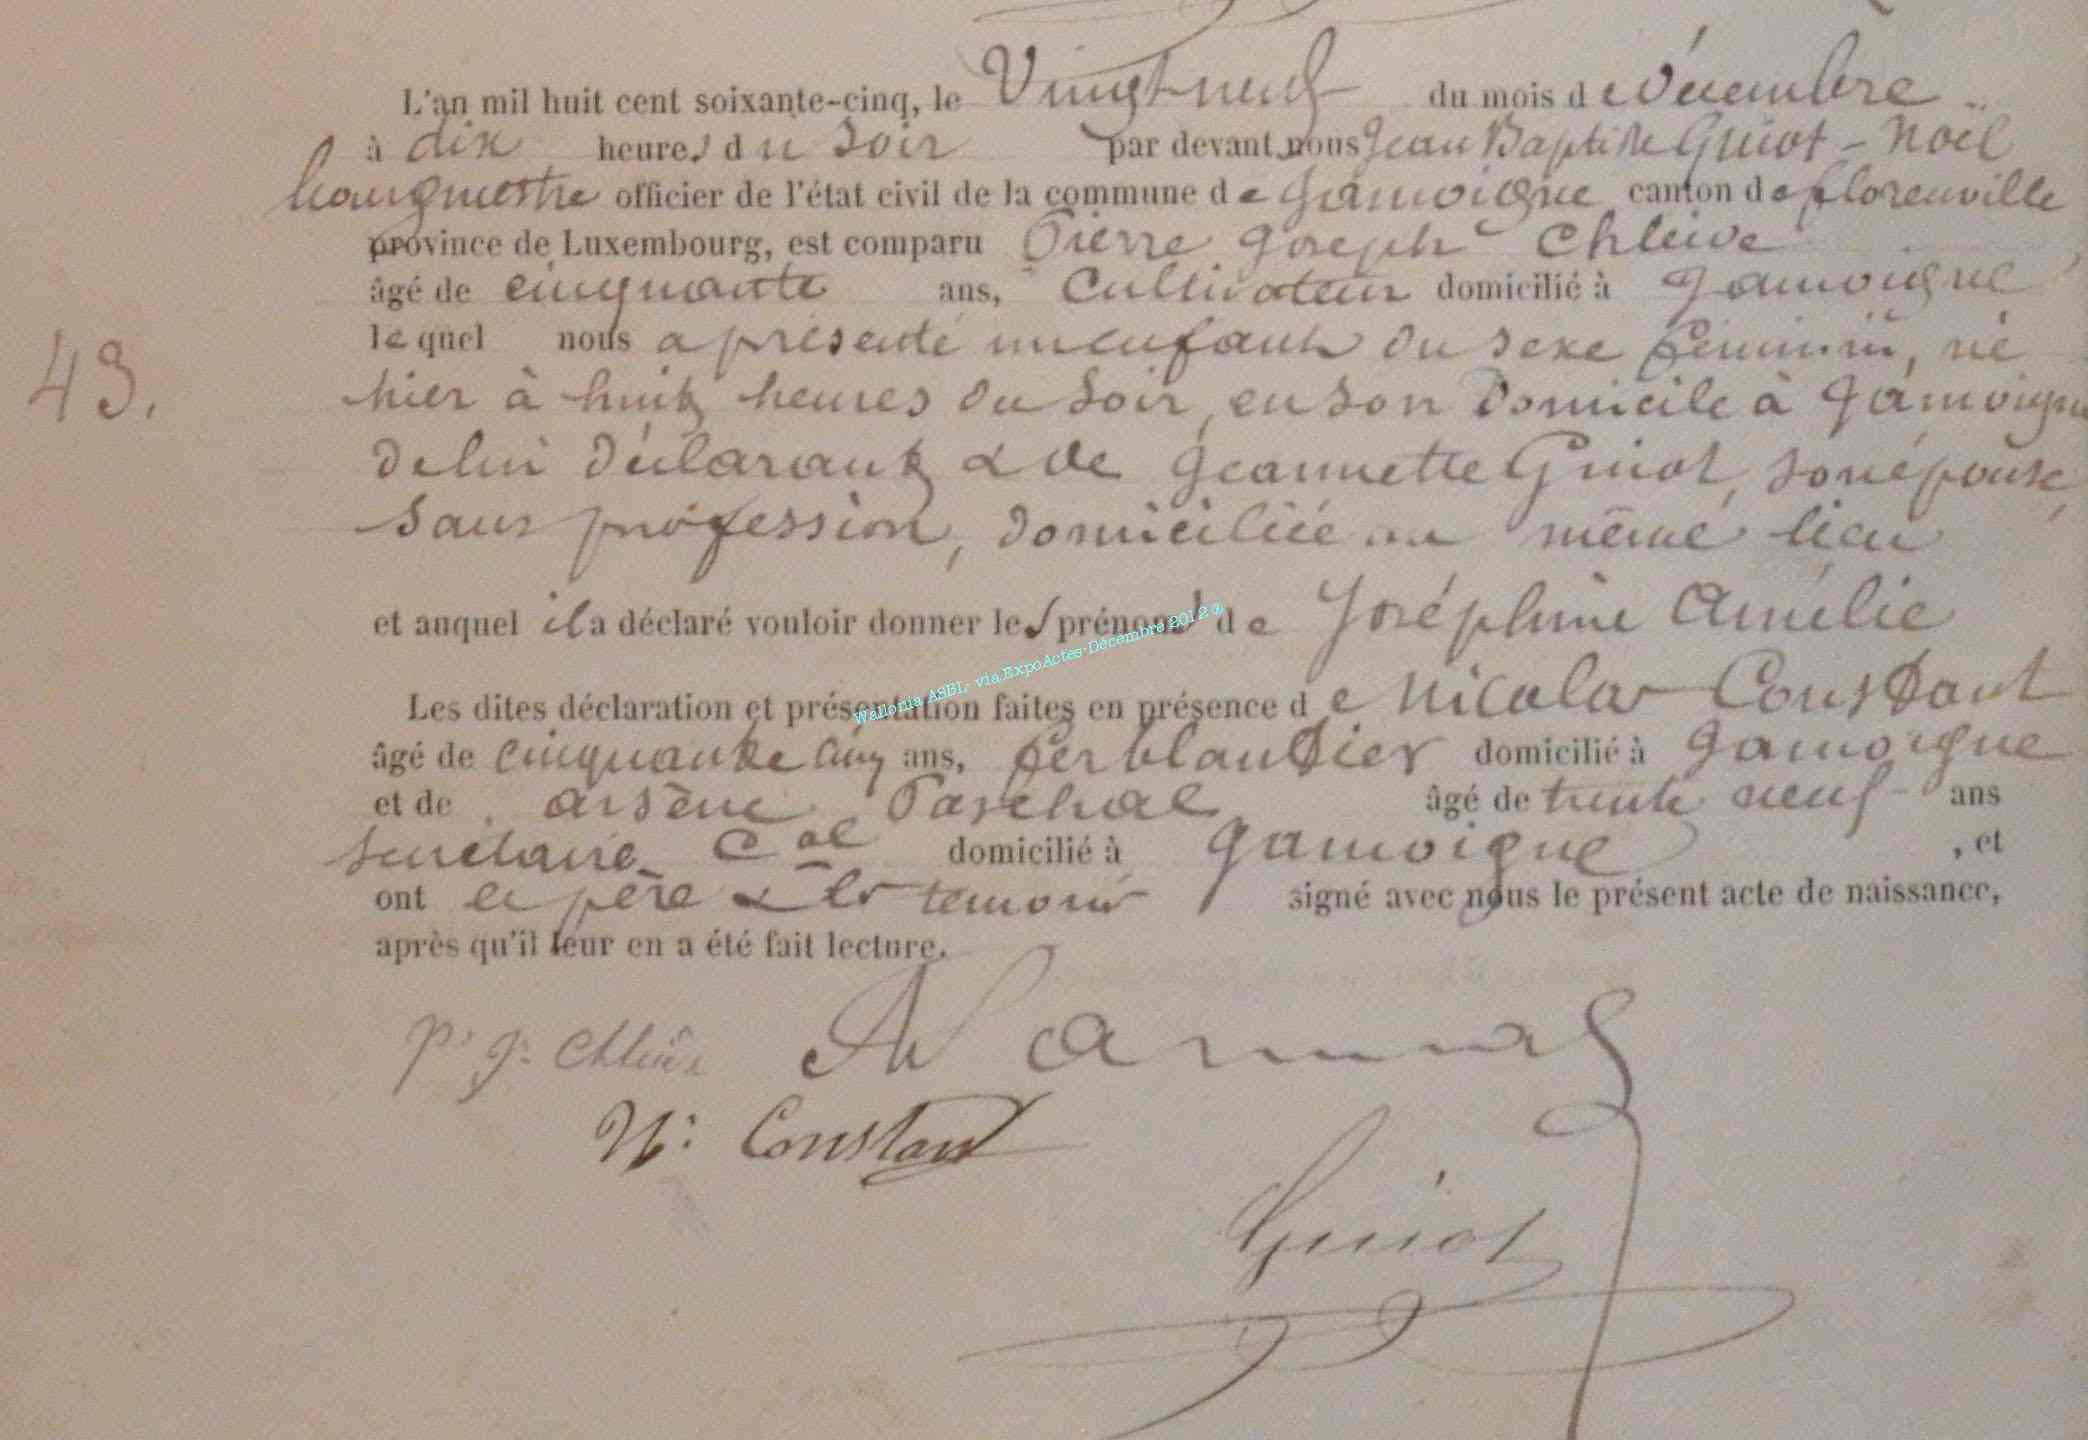 L'an mil huit cent soixante-cinq, le Vingt neuf du mois de décembre
à dix heures du soir par devant nous Jean Baptiste Guiot - Noël
bourgmestre officier de l'état civil de la commune de Jamoigne canton de florenville
province de Luxembourg, est comparu Pierre Joseph Chleide
âgé de cinquante ans, Cultivateur domicilié à Jamoigne
lequel nous a présenté un enfant du sexe féminin, né
43.
hier à huit heures du soir, en son domicile à Jamoigne
de lui déclarant & de Jeannette Guiot, son épouse,
sans profession, domiciliée au même lieu
et auquel il a déclaré vouloir donner les prénoms de Joséphine Amélie
Wallonia ASBL - via ExpoActes-Décembre 2012 @
Les dites déclaration et présentation faites en présence de Nicolas Constant
âgé de cinquante cinq ans, ferblantier domicilié à Jamoigne
et de Arsène Paschal âgé de trente neuf ans
secrétaire Cal domicilié à Jamoigne, et
ont le père & les temoins signé avec nous le présent acte de naissance,
après qu'il leur en a été fait lecture.
P. J. Chleide
N: Constant
Guiot